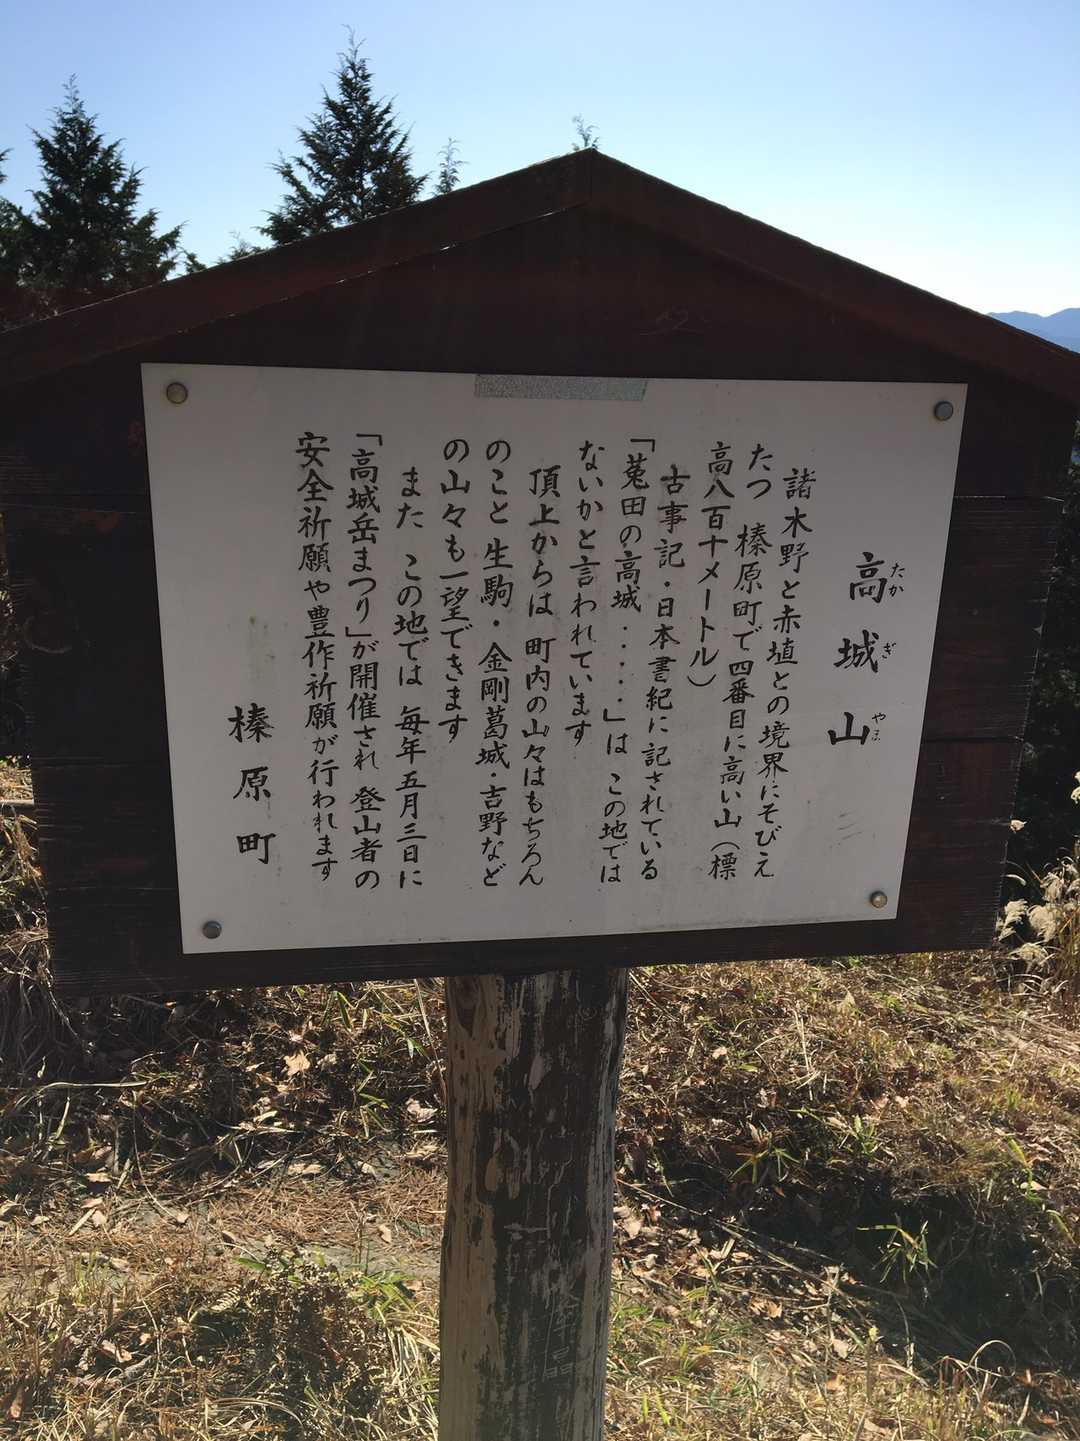 高城山
たかぎやま
諸木野と赤埴との境界にそびえ
たつ 榛原町で四番目に高い山(標
高八百十メートル)
古事記・日本書紀に記されている
「菟田の高城・・・・・」は この地では
ないかと言われています
頂上からは 町内の山々はもちろん
のこと 生駒・金剛葛城・吉野など
の山々も一望できます
また この地では 毎年五月三日に
「高城岳まつり」が開催され 登山者の
安全祈願や豊作祈願が行われます
榛原町